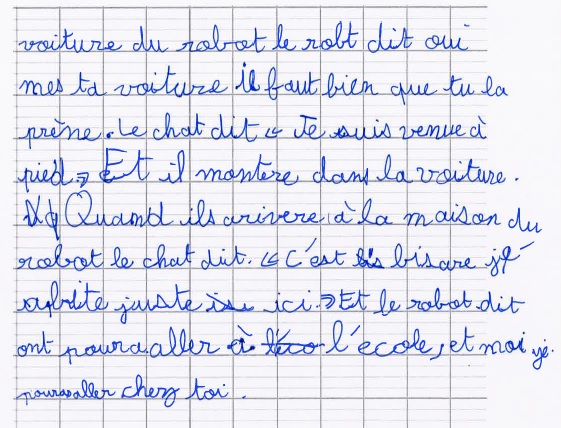 voiture du robot le robt dit oui
mes ta voiture il faut bien que tu la
prène. Le chat dit « Je suis venue à
pied » Et il montère dans la voiture.
Quand ils arivere à la maison du
robot le chat dit. « C'est bisare je
abite juste ici. » Et le robot dit
ont poura aller à l'école, et moi je
pouras aller chez toi.